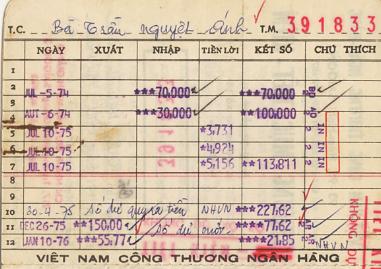 T.C. Bà Trần Nguyệt Ánh T.M. 391833
NGÀY XUẤT NHẬP TIỀN LỜI KẾT SỐ CHÚ THÍCH
1
2 JUL-5-74 ***70,000 ***70,000
3
4 AUT-6-74 ***30,000 **100,000
5 JUL 10-75 *3,731 2 IN
6 JUL 10-75 *4,924 2 IN
7 JUL 10-75 *5,156 **113,811 2 IN
8
9
10 30-4-75 Số dư quy ra tiền NHVN ***227,62
11 DEC 26-75 **150,00 Số dư cuối ****77,62
12 JAN 10-76 ***55,77 ****21,85 NHVN
VIỆT NAM CÔNG THƯƠNG NGÂN HÀNG